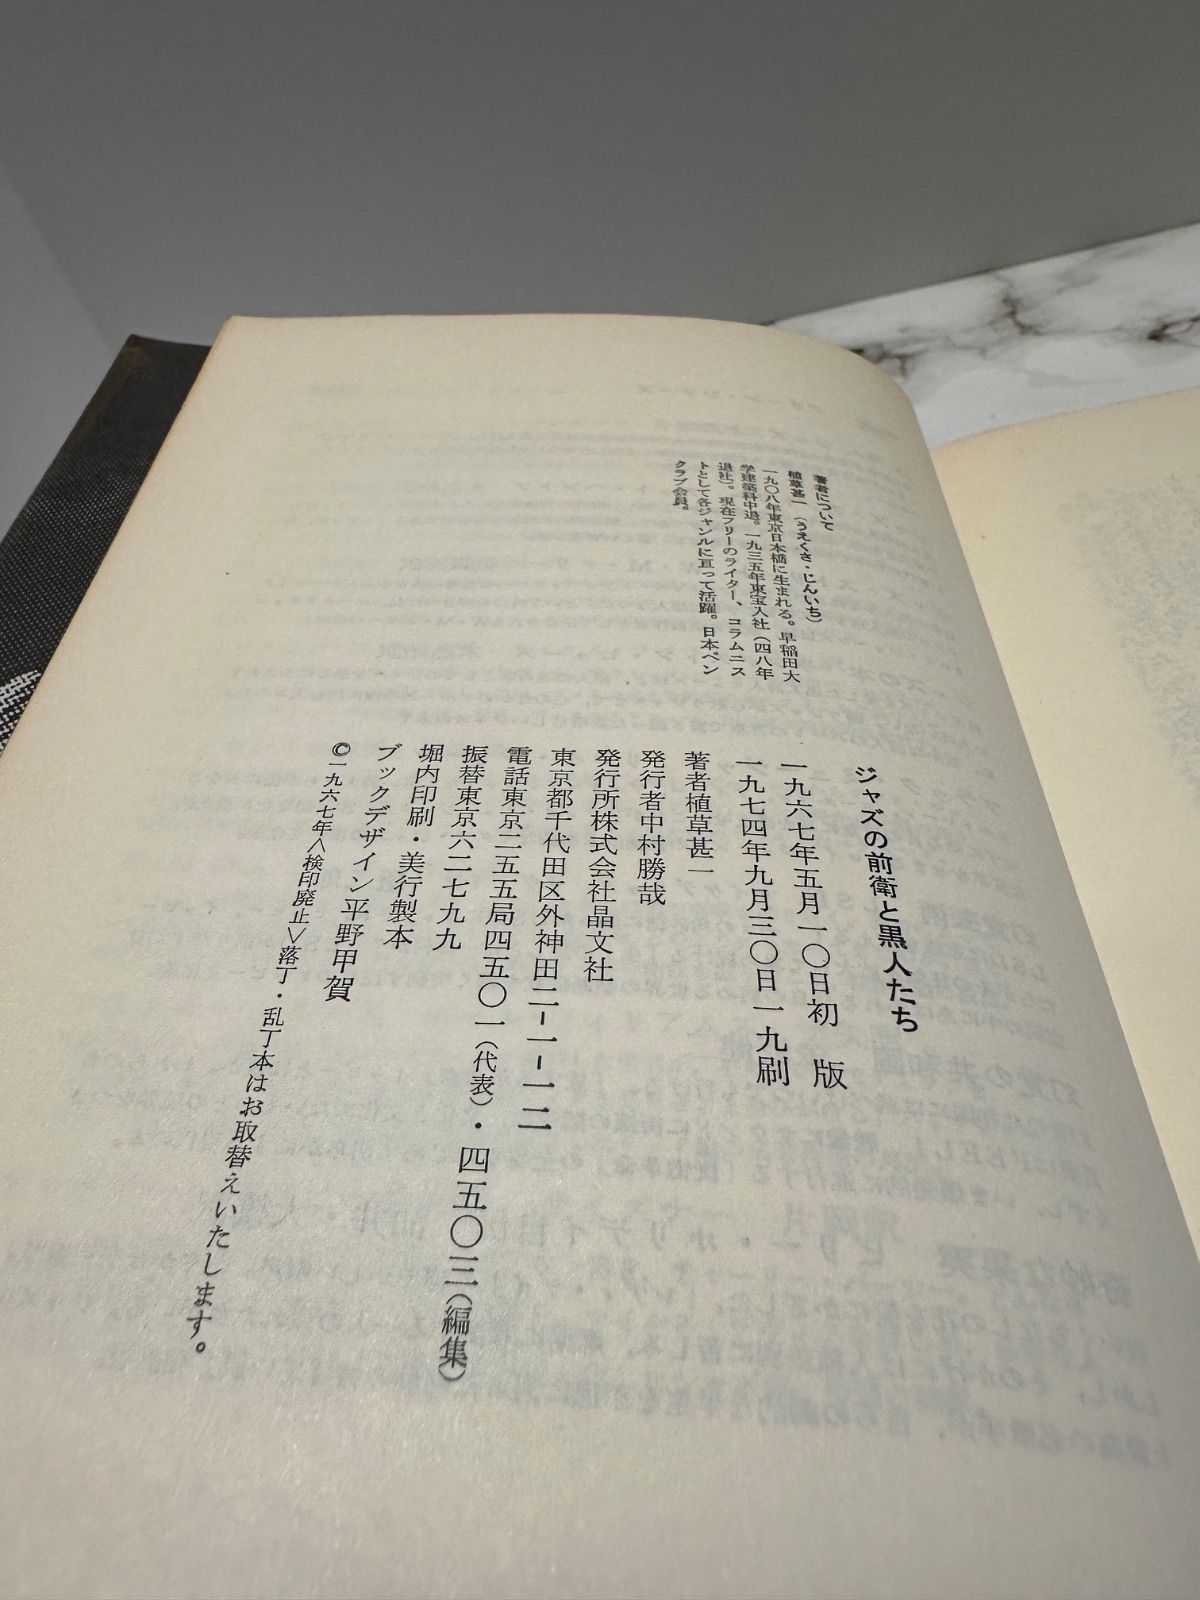 著者について
植草甚一（うえくさ・じんいち）
一九〇八年東京日本橋に生まれる。早稲田大
学建築科中退。一九三五年東宝入社（四八年
退社）。現在フリーのライター、コラムニス
トとして各ジャンルに亘って活躍。日本ペン
クラブ会員。
ジャズの前衛と黒人たち
一九六七年五月一〇日初　版
一九七四年九月三〇日一九刷
著者植草甚一
発行者中村勝哉
発行所株式会社晶文社
東京都千代田区外神田二-一-一二
電話東京二五五局四五〇一（代表）・四五〇三（編集）
振替東京六二七九九
堀内印刷・美行製本
ブックデザイン平野甲賀
©一九六七年＜検印廃止＞落丁・乱丁本はお取替えいたします。